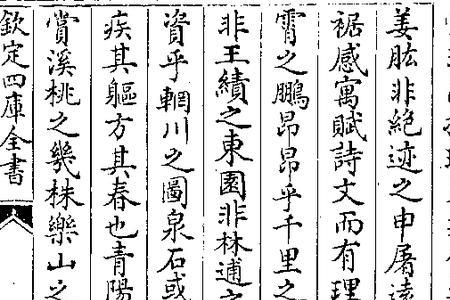 姜肱非絶迹之申屠遠
裾感寓賦詩文而有理
霄之鵬昂昂乎千里之
非王績之東園非林逋之
資乎輞川之圖泉石或
疾其軀方其春也青陽
賞溪桃之幾株樂山之
欽定四庫全書